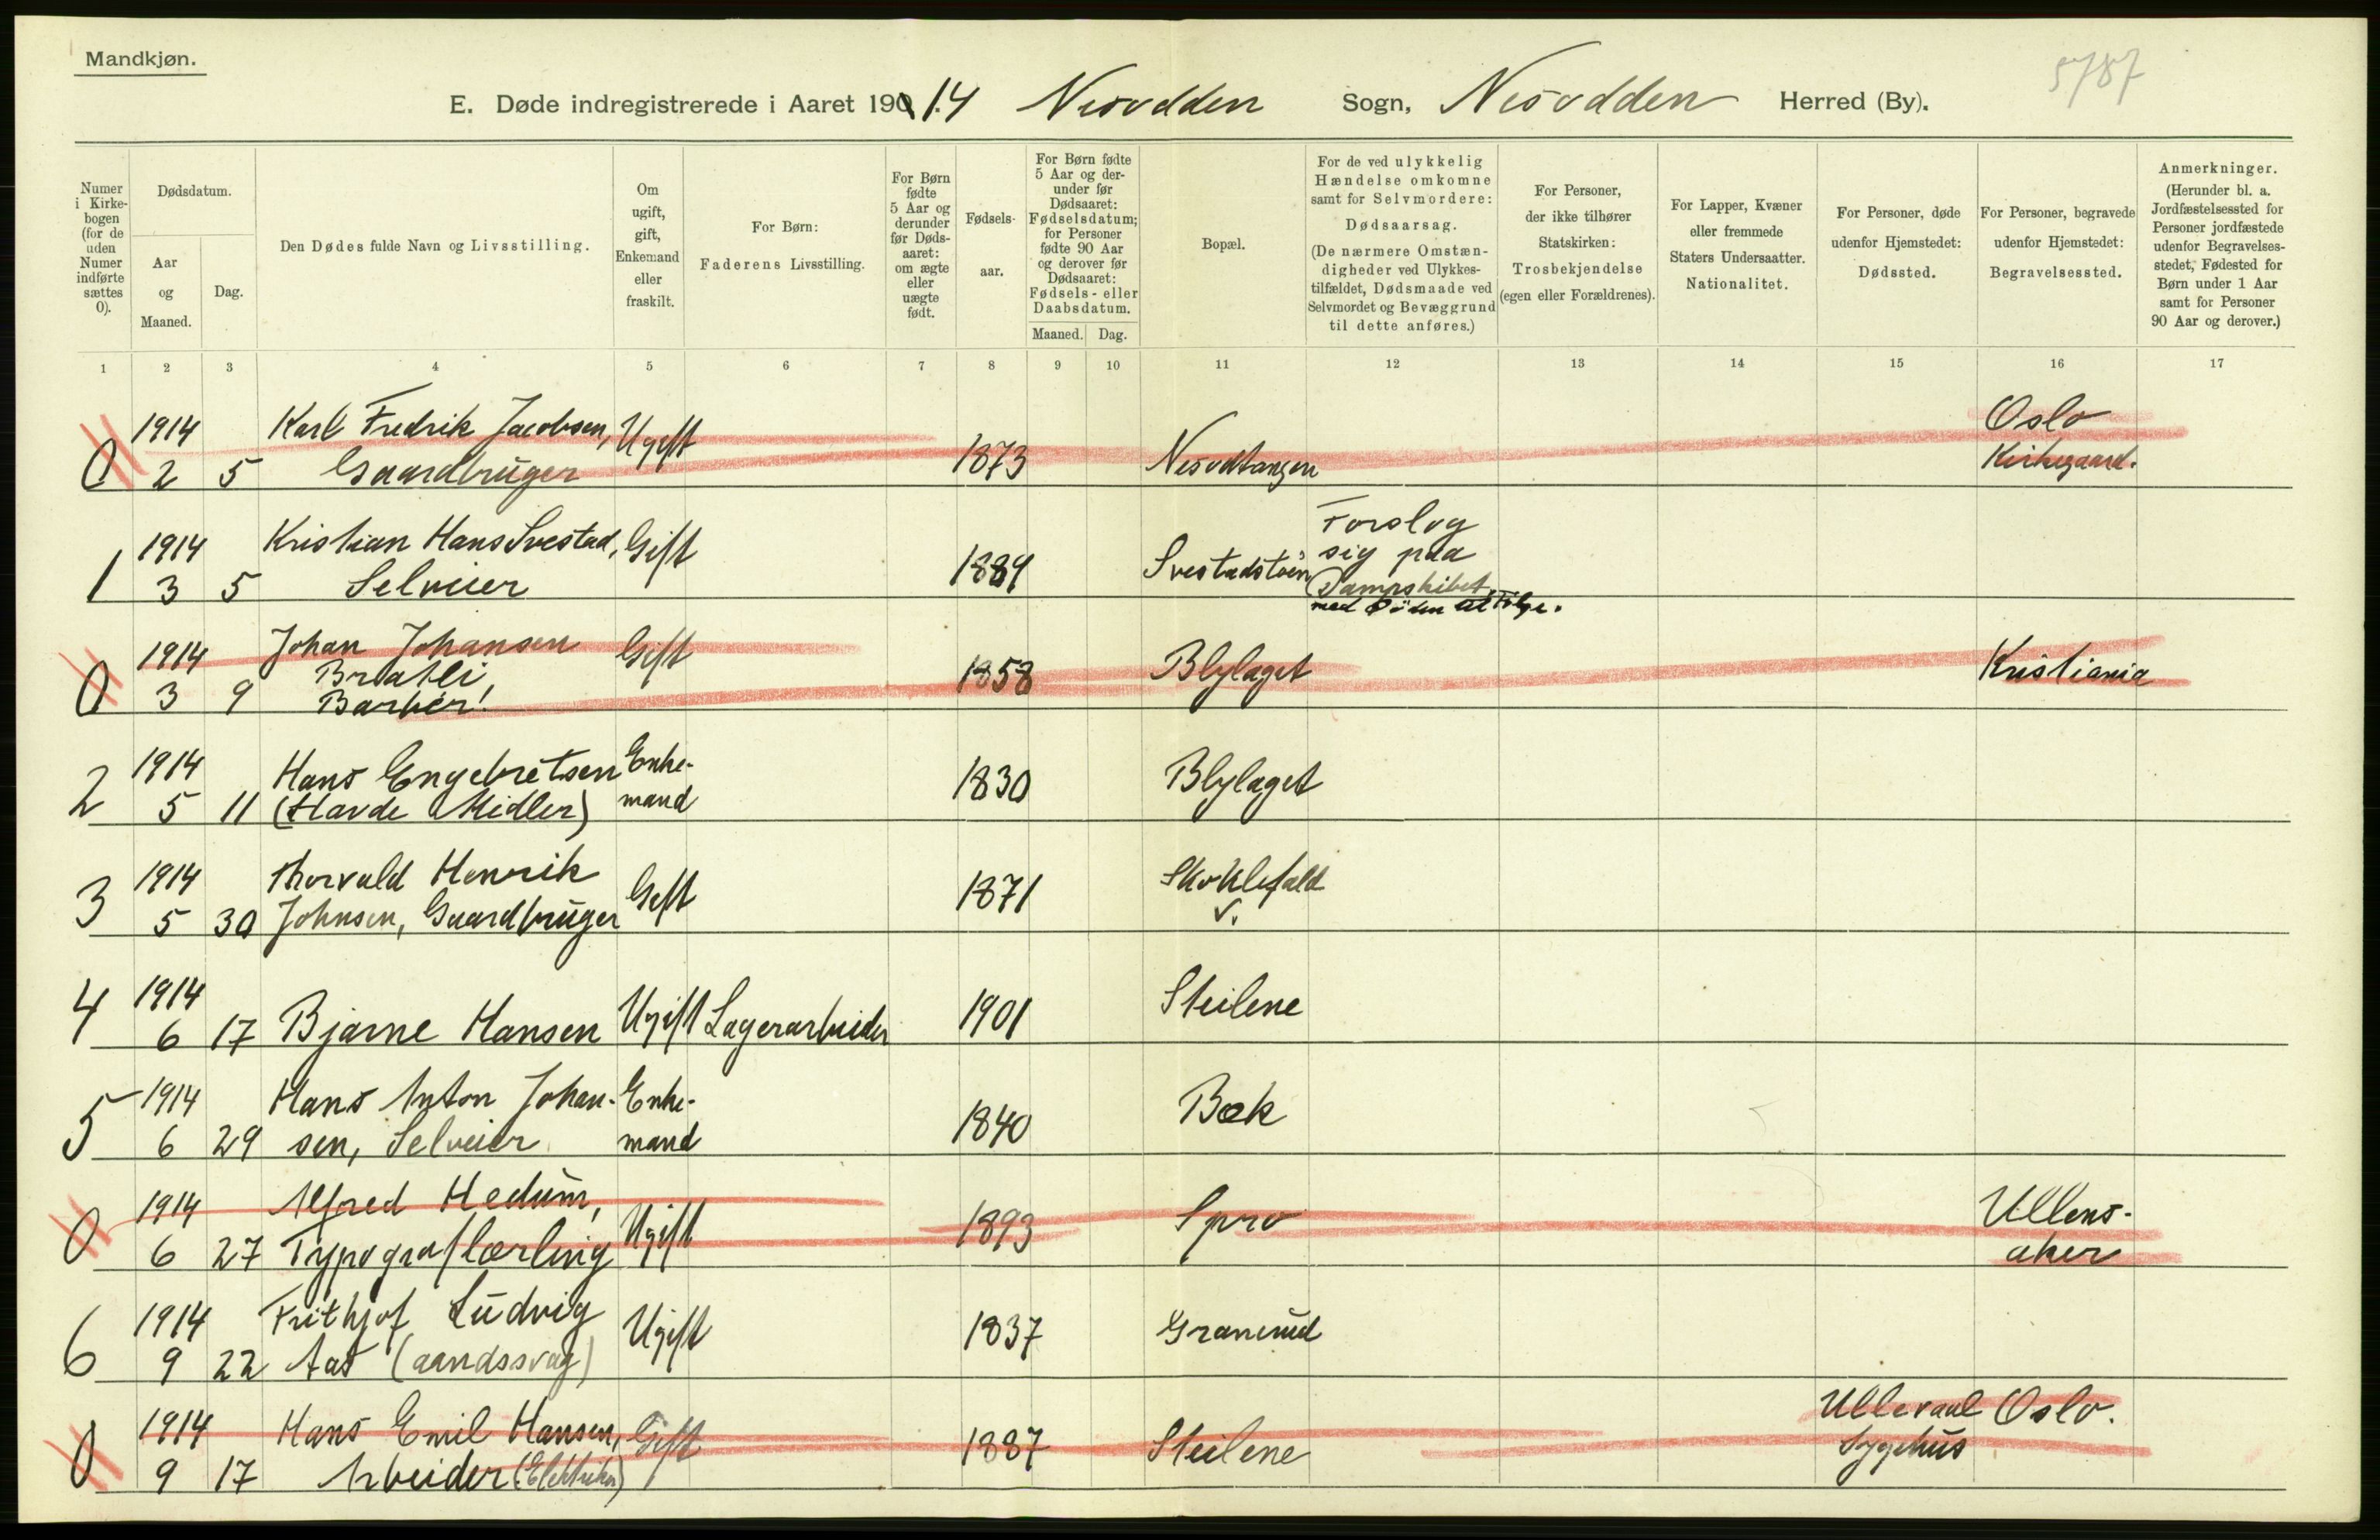 Mandkjøn.
5787
E. Døde indregistrerede i Aaret 1914 Nesodden Sogn, Nesodden Herred (By).
Numer i Kirkebogen (for de uden Numer indførte sættes 0).
Dødsdatum.
Aar og Maaned.
Dag.
Den Dødes fulde Navn og Livsstilling.
Om ugift, gift, Enkemand eller fraskilt.
For Børn: Faderens Livsstilling.
For Børn fødte 5 Aar og derunder før Dødsaaret: om ægte eller uægte født.
Fødselsaar.
For Børn fødte 5 Aar og derunder før Dødsaaret: Fødselsdatum; for Personer fødte 90 Aar og derover før Dødsaaret: Fødsels- eller Daabsdatum.
Maaned. Dag.
Bopæl.
For de ved ulykkelig Hændelse omkomne samt for Selvmordere: Dødsaarsag. (De nærmere Omstændigheder ved Ulykkestilfældet, Dødsmaade ved Selvmordet og Bevæggrund til dette anføres.)
For Personer, der ikke tilhører Statskirken: Trosbekjendelse (egen eller Forældrenes).
For Lapper, Kvæner eller fremmede Staters Undersaatter. Nationalitet.
For Personer, døde udenfor Hjemstedet: Dødssted.
For Personer, begravede udenfor Hjemstedet: Begravelsessted.
Anmerkninger. (Herunder bl. a. Jordfæstelsessted for Personer jordfæstede udenfor Begravelsesstedet, Fødested for Børn under 1 Aar samt for Personer 90 Aar og derover.)
1 2 3 4 5 6 7 8 9 10 11 12 13 14 15 16 17
0 1914 2 5 Karl Fredrik Jacobsen, Gaardbruger Ugift 1873 Nesodtangen Oslo Kirkegaard.
1 1914 3 5 Kristian Hans Svestad, Selveier Gift 1889 Svestadstøen Forslog sig paa Dampskibet, med Døden til Følge.
0 1914 3 9 Johan Johansen Bratli, Barber! Gift 1858 Blylaget Kristiania
2 1914 5 11 Hans Engebretsen (Havde Midler) Enkemand 1830 Blylaget
3 1914 5 30 Thorvald Henrik Johnsen, Gaardbruger Gift 1871 Skoklefald v.
4 1914 6 17 Bjarne Hansen Ugift Lagerarbeider 1901 Steilene
5 1914 6 29 Hans Anton Johansen, Selveier Enkemand 1840 Bæk
0 1914 6 27 Alfred Hedum, Typograflærling Ugift 1893 Spro Ullensaker
6 1914 9 22 Frithjof Ludvig Aas (aandssvag) Ugift 1837 Granerud
0 1914 9 17 Hans Emil Hansen, Arbeider (Elektriker) Gift 1887 Steilene Ullevaal Sygehus Oslo.